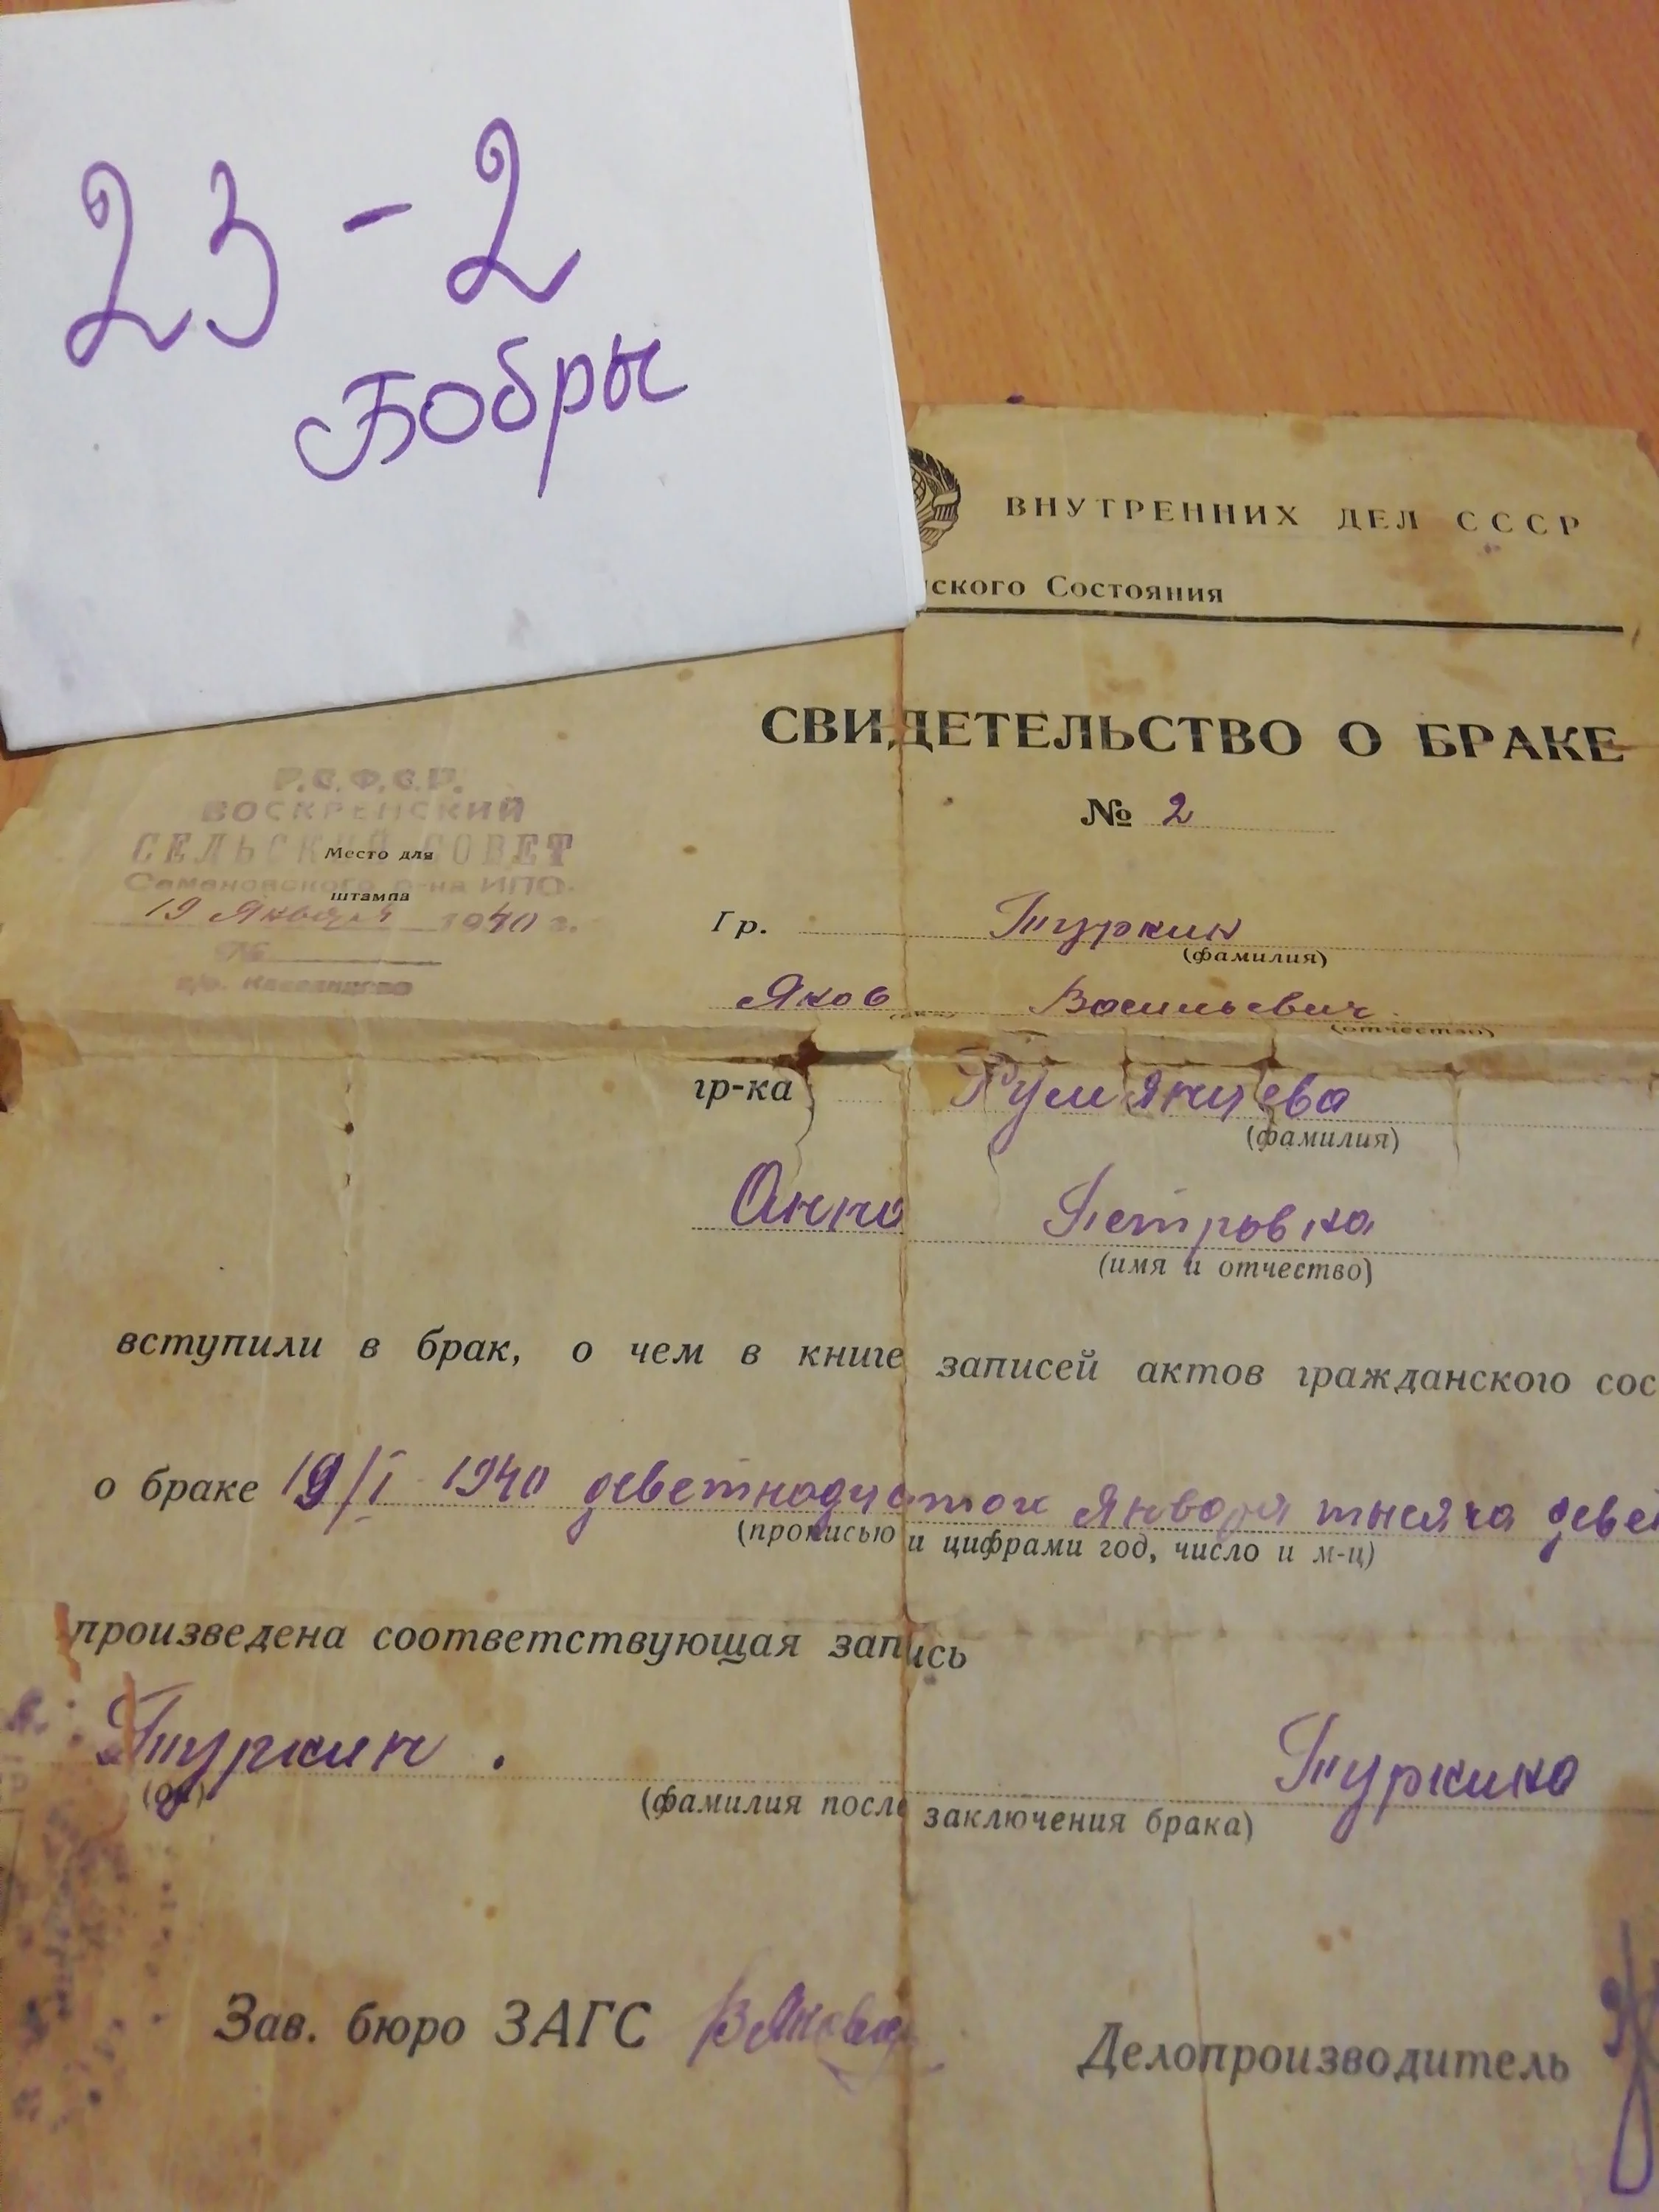 23-2
Бобры
ВНУТРЕННИХ ДЕЛ СССР
ского Состояния
СВИДЕТЕЛЬСТВО О БРАКЕ
№ 2
Р.С.Ф.С.Р.
ВОСКРЕНСКИЙ
СЕЛЬСКИЙ СОВЕТ
Место для
Семеновского р-на ИПО.
штампа
19 Января 1940 г.
№
Гр. Туркин
(фамилия)
Яков Васильевич
(отчество)
гр-ка Румянцева
(фамилия)
Анна Петровна
(имя и отчество)
вступили в брак, о чем в книге записей актов гражданского сос
о браке 19/I 1940 деветнадцаток Января тысяча деве
(прописью и цифрами год, число и м-ц)
произведена соответствующая запись
Туркин. Туркина
(он) (фамилия после заключения брака)
Зав. бюро ЗАГС
Делопроизводитель